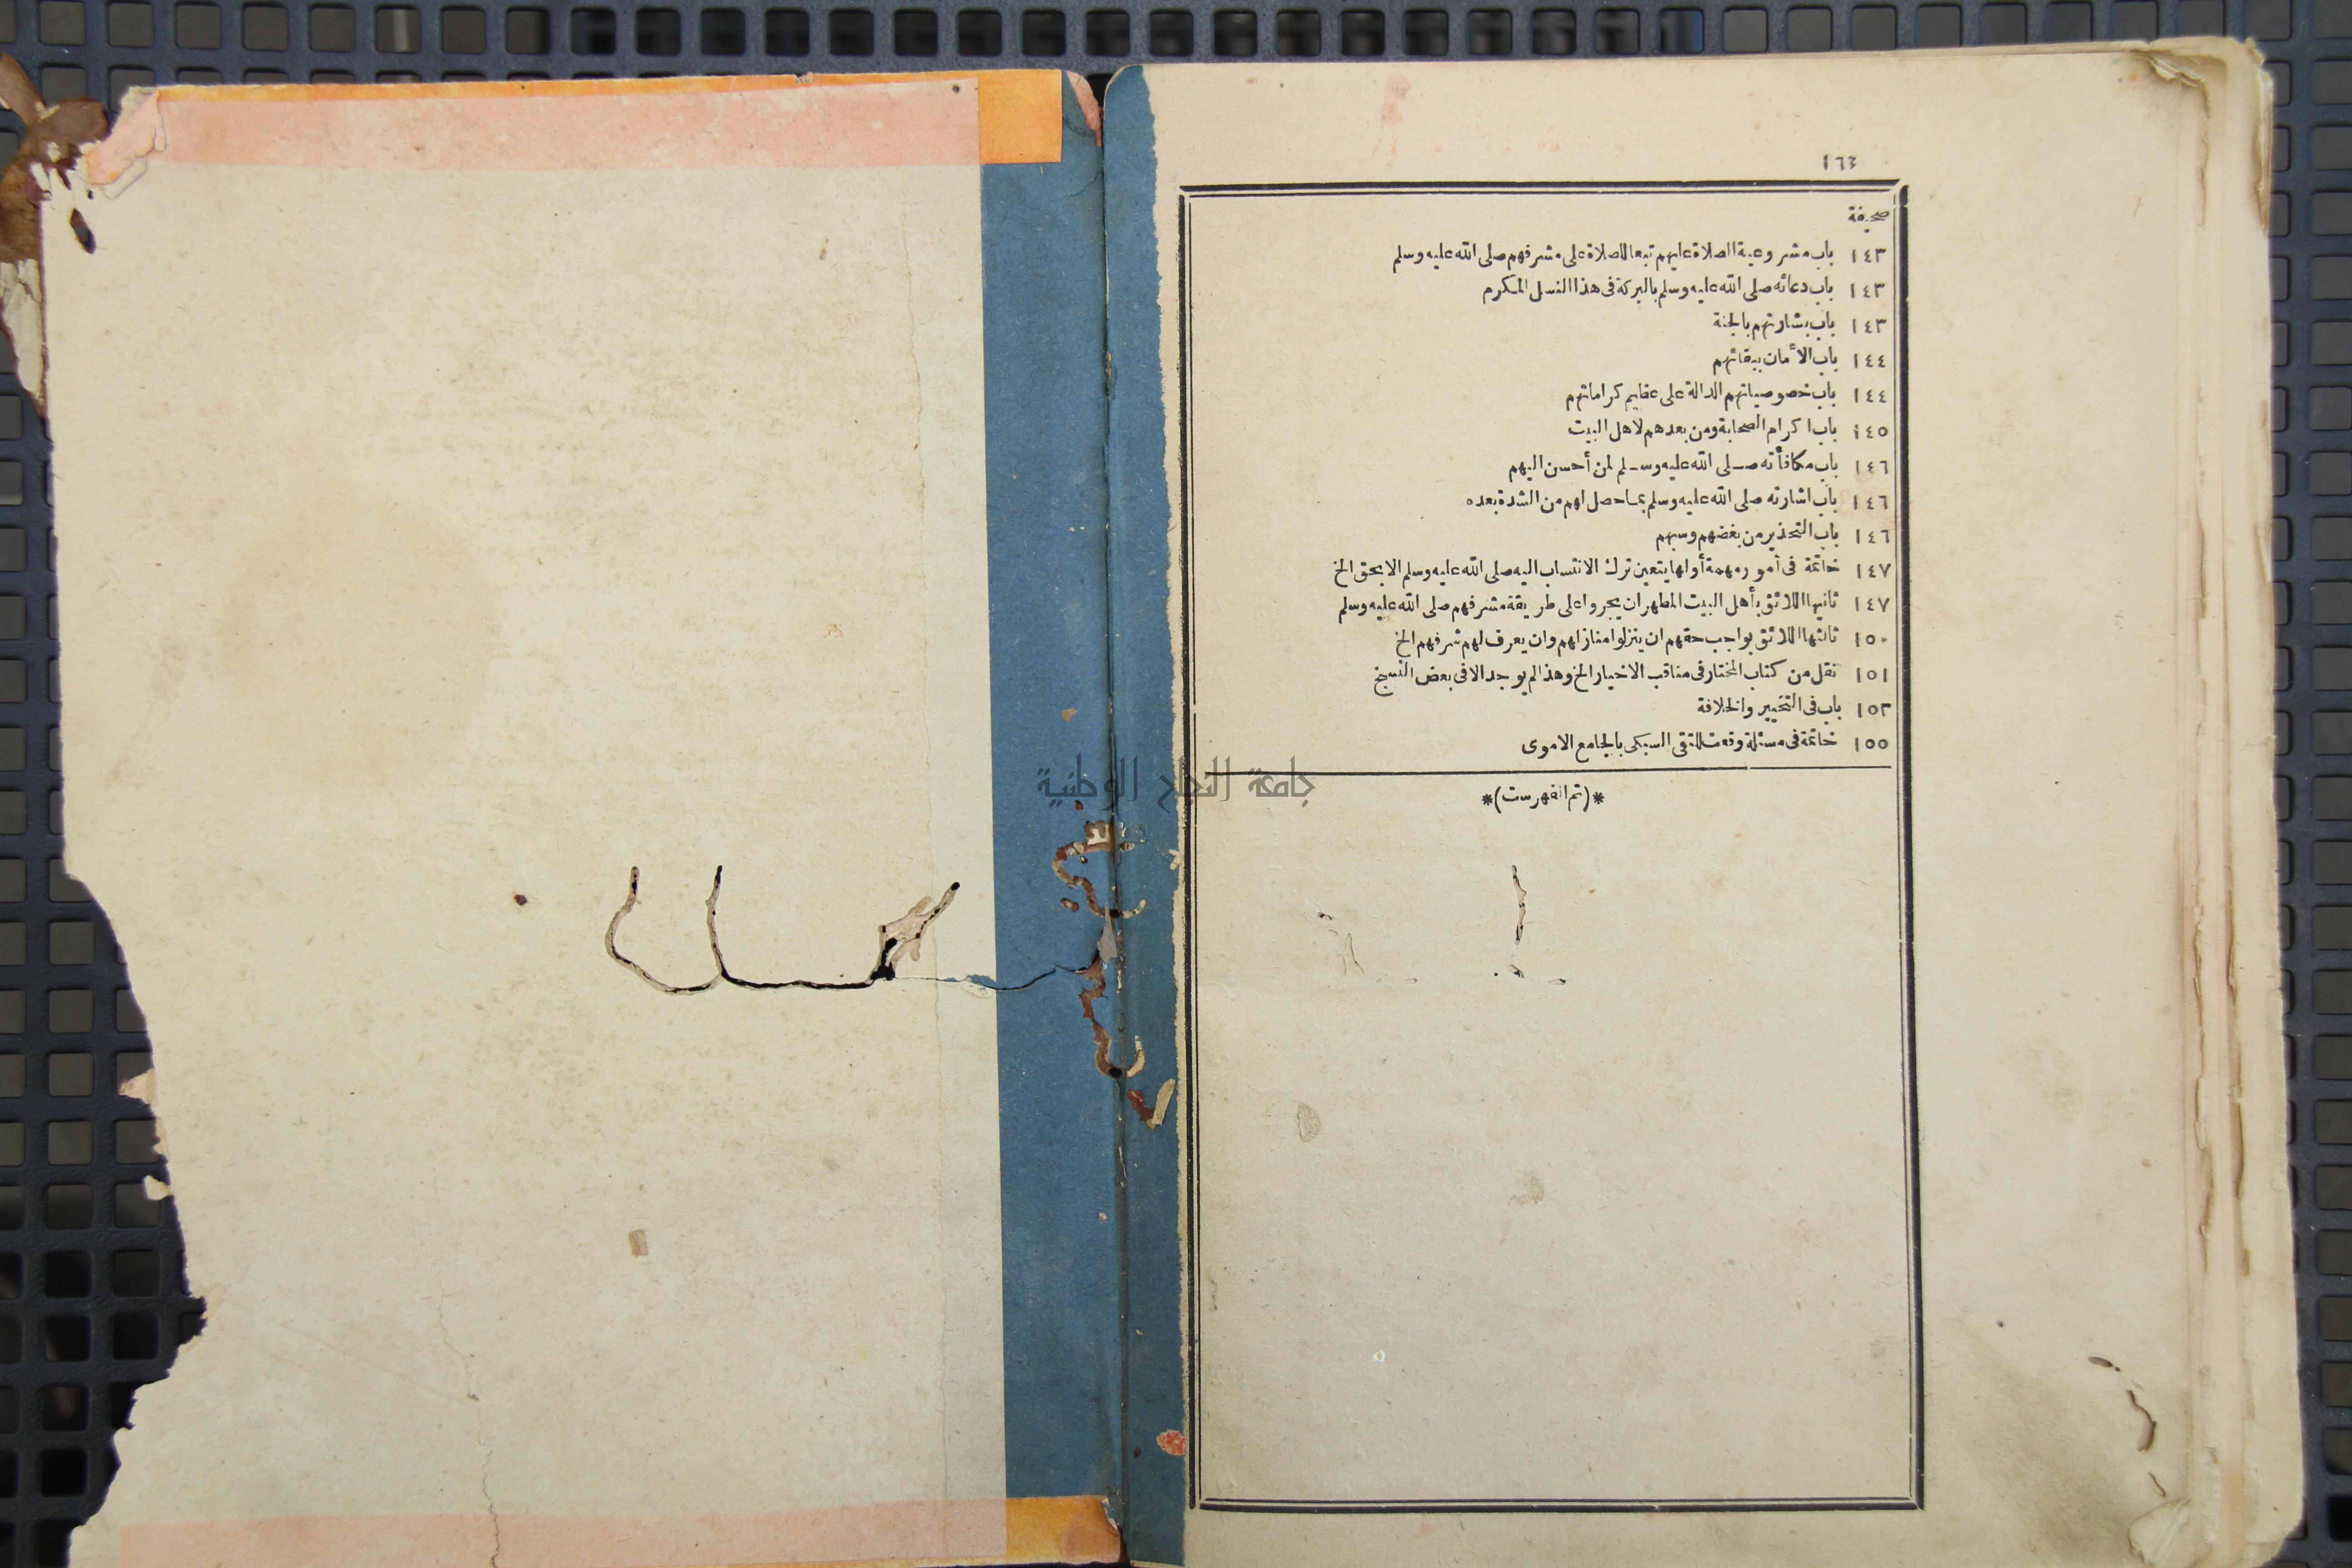 ١٦٤
صحيفة
١٤٣ باب مشروعية الصلاة عليهم تبعا للصلاة على مشرفهم صلى الله عليه وسلم
١٤٣ باب دعائه صلى الله عليه وسلم بالبركة فى هذا النسل المكرم
١٤٣ باب بشارتهم بالجنة
١٤٤ باب الأمان ببقائهم
١٤٤ باب خصوصياتهم الدالة على عظيم كراماتهم
١٤٥ باب اكرام الصحابة ومن بعدهم لاهل البيت
١٤٦ باب مكافأته صلى الله عليه وسلم لمن أحسن اليهم
١٤٦ باب اشارته صلى الله عليه وسلم بما حصل لهم من الشدة بعده
١٤٦ باب التحذير من بغضهم وسبهم
١٤٧ خاتمة فى أمور مهمة أولها يتعين ترك الانتساب اليه صلى الله عليه وسلم الا بحق الخ
١٤٧ ثانيها اللائق بأهل البيت المطهر ان يجروا على طريقة مشرفهم صلى الله عليه وسلم
١٥٠ ثالثها اللائق بواجب حقهم ان ينزلوا منازلهم وان يعرف لهم شرفهم الخ
١٥١ نقل من كتاب المختار فى مناقب الاخيار الخ وهذا لم يوجد الا فى بعض النسخ
١٥٣ باب فى التخيير والخلافة
١٥٥ خاتمة فى مسئلة وقعت للتقى السبكى بالجامع الاموى
*(تم الفهرست)*
جامعة النجاح الوطنية